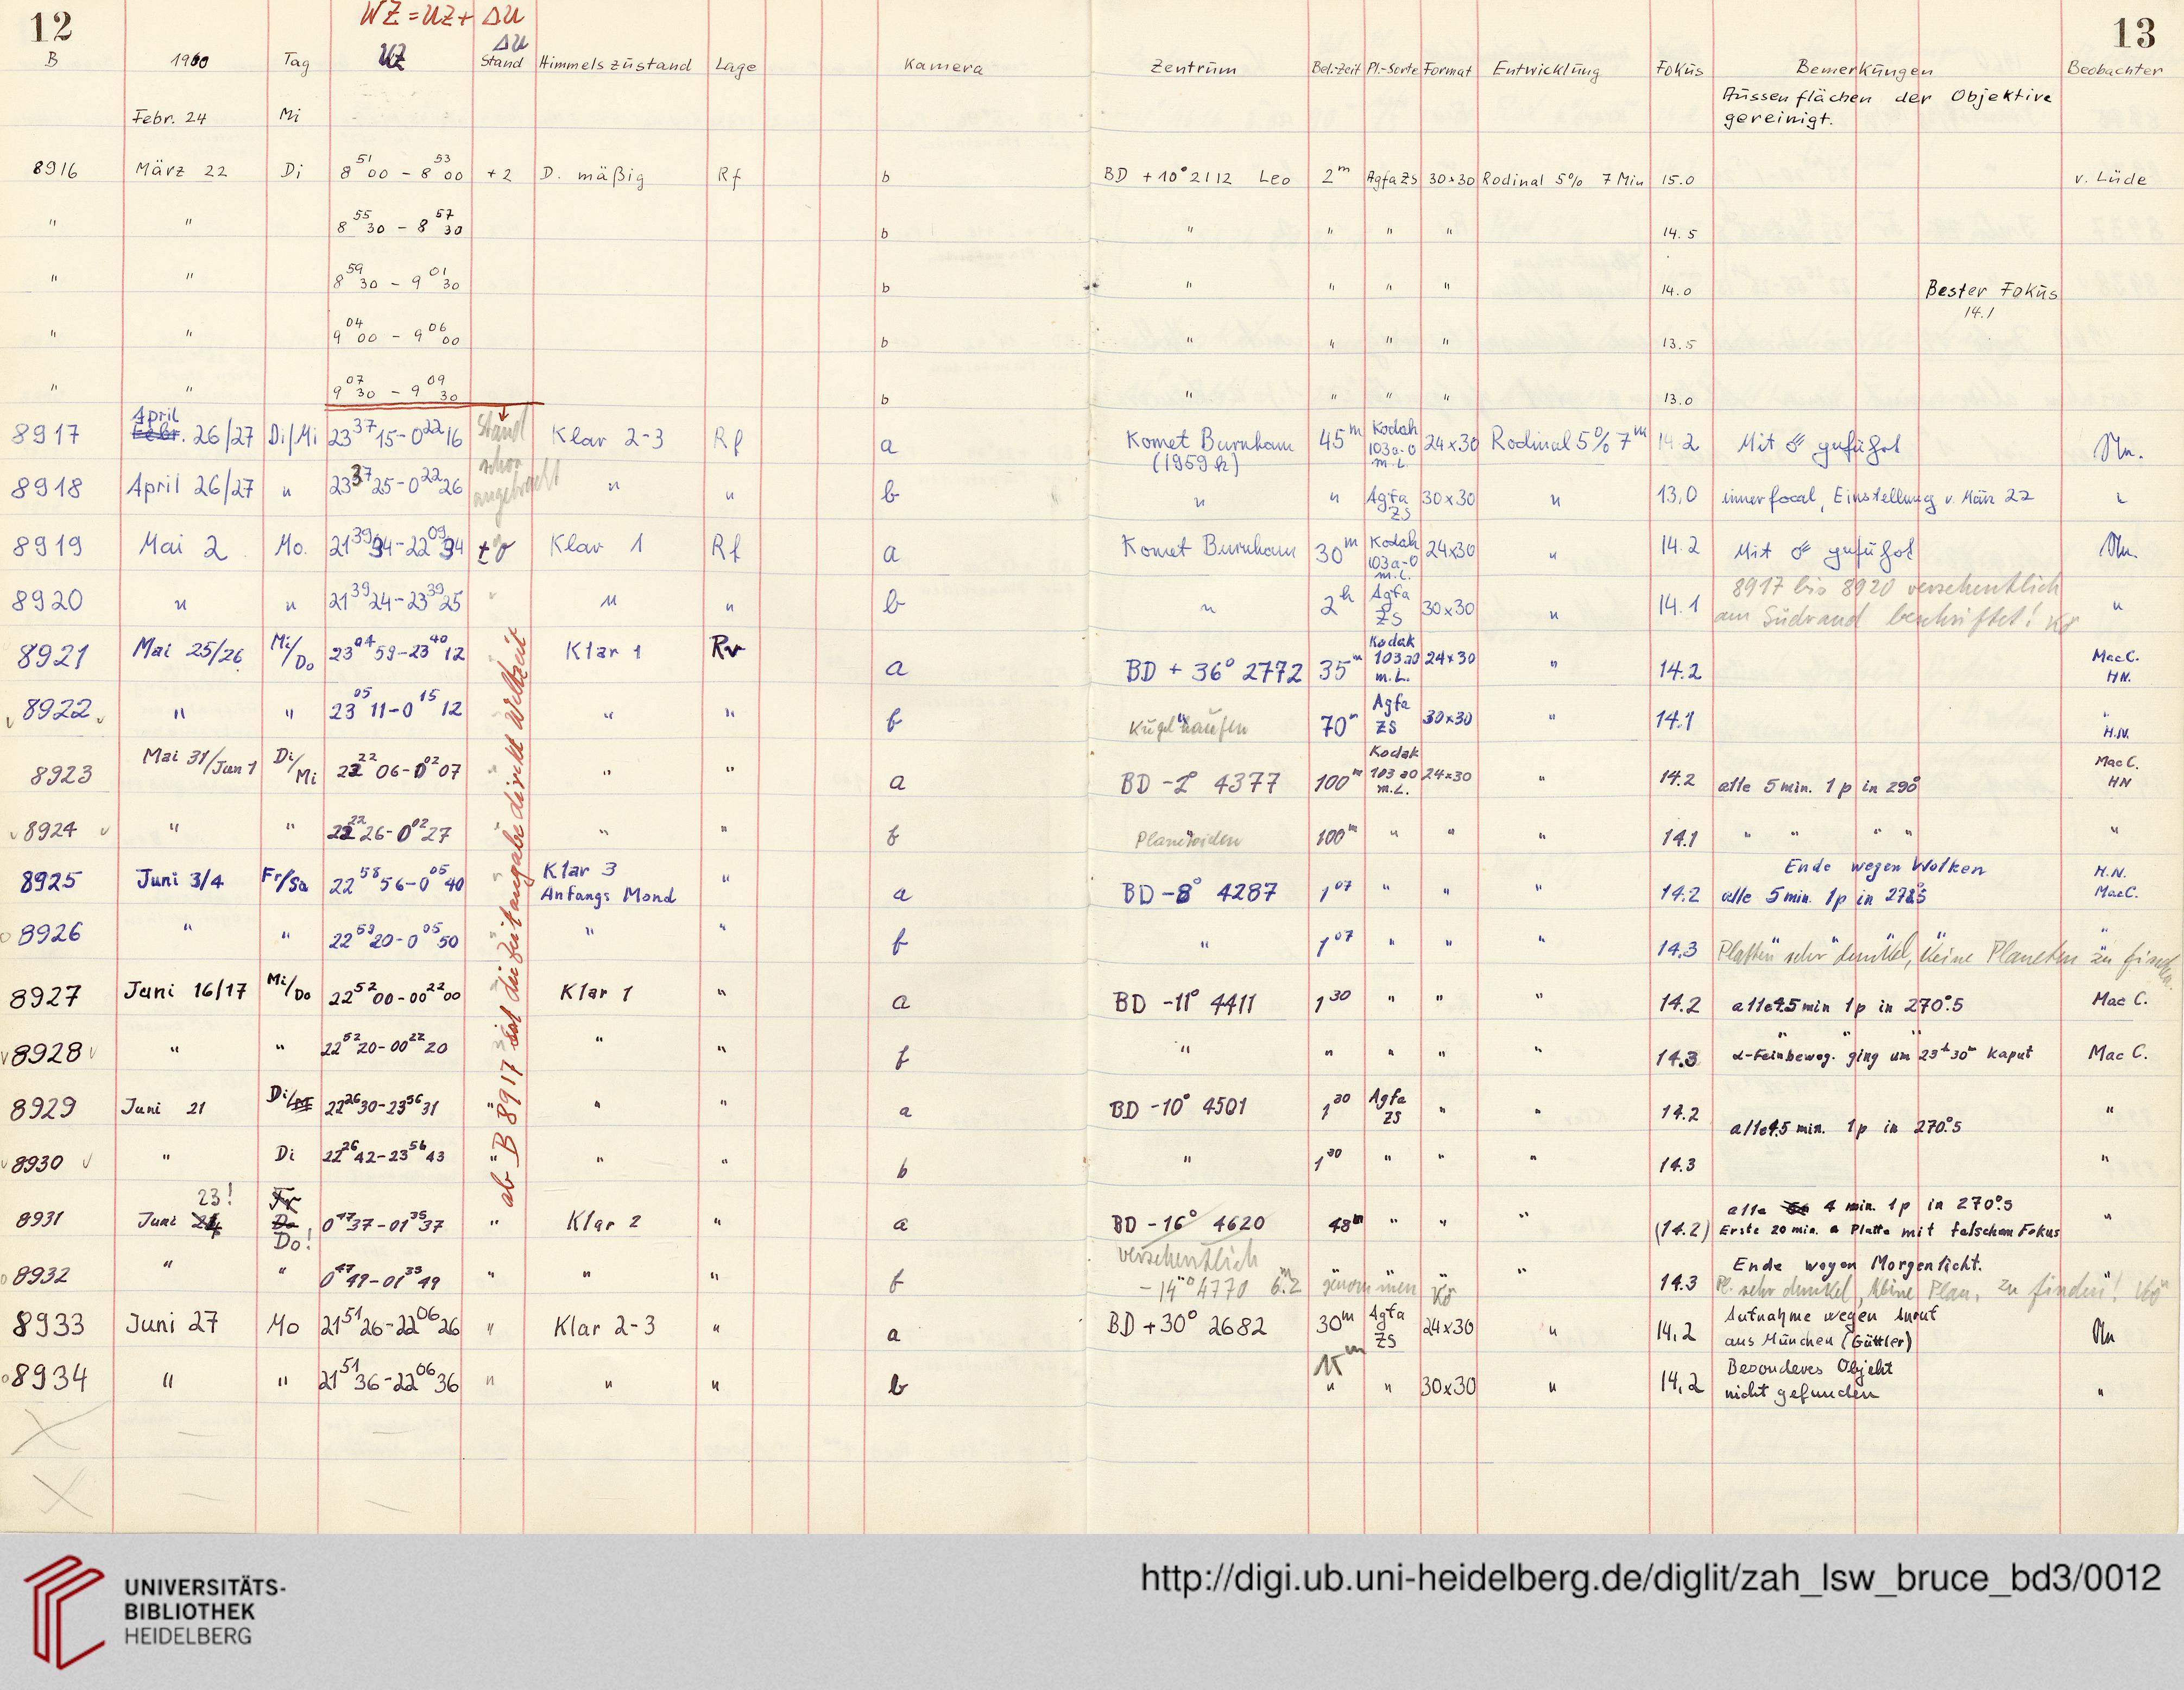 12 WZ = UZ + ΔU 13
B 1960 Tag UZ ΔU Stand Himmelszustand Lage Kamera Zentrum Bel.-Zeit Pl.-Sorte Format Entwicklung Fokus Bemerkungen Beobachter
Febr. 24 Mi Aussenflächen der Objektive
gereinigt.
8916 März 22 Di 8 51 00 – 8 53 00 +2 D. mäßig Rf b BD +10° 2112 Leo 2m Agfa ZS 30×30 Rodinal 5% 7 Min 15.0 v. Lüde
" " 8 55 30 – 8 57 30 b " " " " 14.5
" " 8 59 30 – 9 01 30 b " " " " 14.0 Bester Fokus
14.1
" " 9 04 00 – 9 06 00 b " " " " 13.5
" " 9 07 30 – 9 09 30 b " " " " 13.0
8917 April Febr. 26/27 Di/Mi 23 37 15 – 0 22 16 Stand Klar 2-3 Rf a Komet Burnham (1959 k) 45m Kodak 103a-O m.L. 24×30 Rodinal 5% 7m 14.2 Mit ☍ geführt
schon
angebracht
8918 April 26/27 " 23 37 25 – 0 22 26 " " b " " Agfa ZS 30×30 " 13,0 innerfocal, Einstellung v. März 22 "
8919 Mai 2 Mo. 21 39 34 – 22 09 34 ±0 Klar 1 Rf a Komet Burnham 30m Kodak 103a-O m.L. 24×30 " 14.2 Mit geführt
8920 " " 21 39 24 – 23 39 25 " " " b " 2h Agfa ZS 30×30 " 14.1 8917 bis 8920 versehentlich "
am Südrand beschriftet! Kö
8921 Mai 25/26 Mi/Do 23 04 59 – 23 40 12 Klar 1 Rv a BD + 36° 2772 35m Kodak 103 aO m.L. 24×30 " 14.2 MacC. HN.
8922 " " 23 05 11 – 0 15 12 " " b Kugelhaufen " 70m Agfa ZS 30×30 " 14.1 " H.N.
8923 Mai 31/Jun 1 Di/Mi 22 22 06 – 0 02 07 " " " a BD -2° 4377 100m Kodak 103 aO m.L. 24×30 " 14.2 alle 5 min. 1 p in 290° MacC. HN
8924 " " 22 22 26 – 0 02 27 " " " b Planetoiden " 100m " " " 14.1 " " " " "
8925 Juni 3/4 Fr/Sa 22 58 56 – 0 05 40 " Klar 3 Anfangs Mond " a BD -8° 4287 1 07 " " " 14.2 Ende wegen Wolken H.N. MacC.
alle 5 min. 1p in 278°5
8926 " " 22 59 20 – 0 05 50 " " " b " 1 07 " " " 14.3 Platten sehr dunkel, keine Planeten zu finden. "
8927 Juni 16/17 Mi/Do 22 52 00 – 00 22 00 " Klar 1 " a BD -11° 4411 1 30 " " " 14.2 alle 4.5 min 1p in 270°.5 Mac C.
8928 " " 22 52 20 – 00 22 20 " " b " " " " " 14.3 " " "
α-Feinbeweg. ging um 23h 30m kaput Mac C.
8929 Juni 21 Di/Mi 22 26 30 – 23 56 31 " " " a BD -10° 4501 1 30 Agfa ZS " " 14.2 alle 4.5 min. 1p in 270°.5 "
8930 " Di 22 26 42 – 23 56 43 " " " b " 1 30 " " " 14.3 "
8931 Juni 24 23! Fr Do Do! 0 47 37 – 01 35 37 " Klar 2 " a BD -16° 4620 48m " " " (14.2) alle 4 min. 1p in 270°.5 "
Erste 20 min. a Platte mit falschem Fokus
8932 " " 0 47 49 – 01 35 49 " " " b versehentlich " " " 14.3 Ende wegen Morgenlicht. "
-14° 4770 6m.2 genommen Kö Pl. sehr dunkel, keine Plan. zu finden! Kö
8933 Juni 27 Mo 21 51 26 – 22 06 26 " Klar 2-3 " a BD +30° 2682 30m 15m Agfa ZS 24×30 " 14,2 Aufnahme wegen Anruf
aus München (Güttler)
8934 " " 21 51 36 – 22 06 36 " " " b " " 30×30 " 14,2 Besonderes Objekt
nicht gefunden "
ab B 8917 ist die Zeitangabe direkt Weltzeit
UNIVERSITÄTS-
BIBLIOTHEK
HEIDELBERG
http://digi.ub.uni-heidelberg.de/diglit/zah_lsw_bruce_bd3/0012